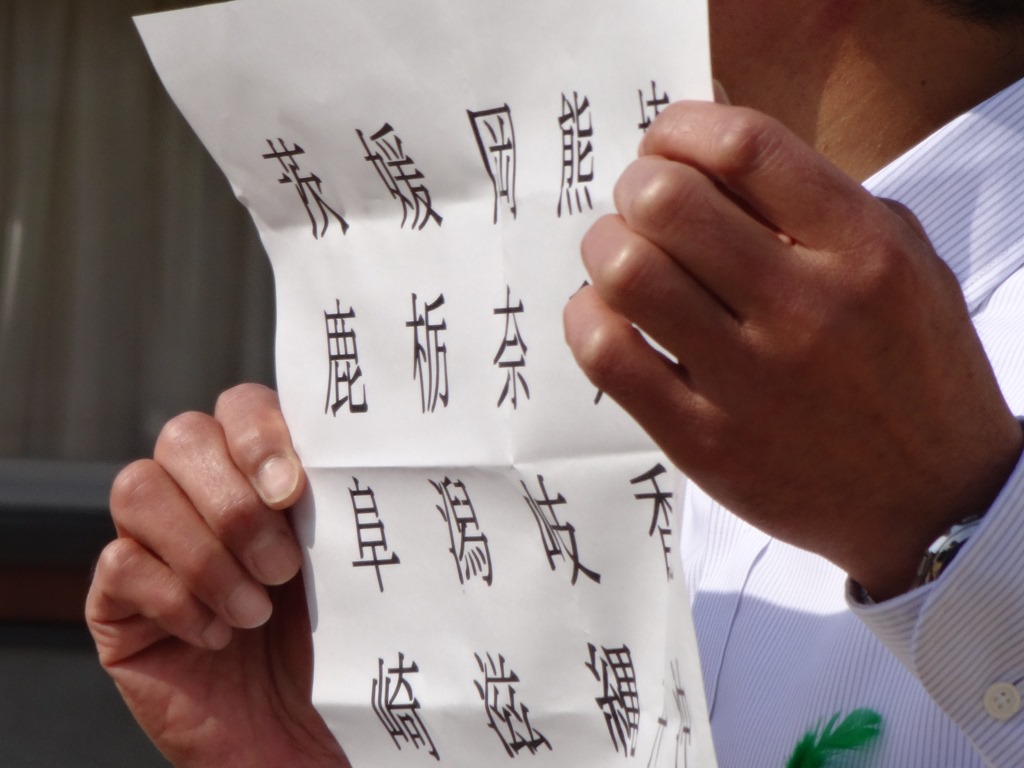 茨 媛 岡 熊
鹿 栃 奈
阜 潟 岐
崎 滋 縄